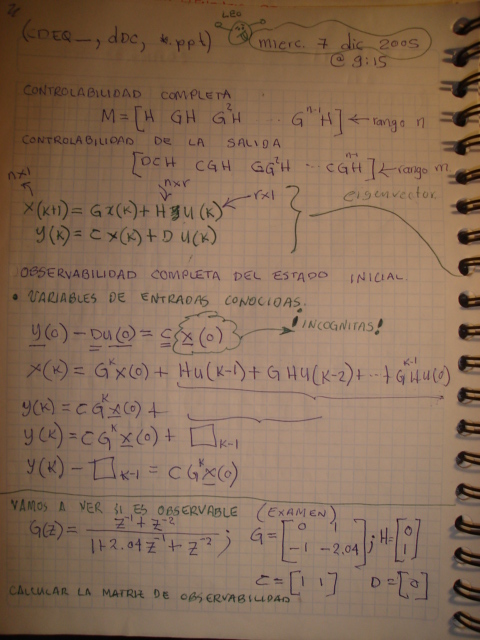 LEO
(CDEQ_, dDC, *.ppt) mierc. 7 dic 2005
@ 9:15
CONTROLABILIDAD COMPLETA
M = [H GH G²H ... Gⁿ⁻¹H] ← rango n
CONTROLABILIDAD DE LA SALIDA
[DCH CGH CG²H ... CGⁿ⁻¹H] ← rango m
n×1 n×r r×1 eigenvector
X(k+1) = Gx(k) + H U(k)
Y(k) = C x(k) + D U(k)
OBSERVABILIDAD COMPLETA DEL ESTADO INICIAL
• VARIABLES DE ENTRADAS CONOCIDAS.
y(0) - DU(0) = C x(0) → ¡INCOGNITAS!
X(k) = Gᵏx(0) + HU(k-1) + GHU(k-2) + ... + Gᵏ⁻¹HU(0)
y(k) = CGᵏx(0) +
y(k) = CGᵏx(0) + □ₖ₋₁
y(k) - □ₖ₋₁ = CGᵏx(0)
VAMOS A VER SI ES OBSERVABLE (EXAMEN)
G(z) = (z⁻¹ + z⁻²) / (1 + 2.04z⁻¹ + z⁻²) ; G = [0 1; -1 -2.04] ; H = [0; 1]
C = [1 1] D = [0]
CALCULAR LA MATRIZ DE OBSERVABILIDAD